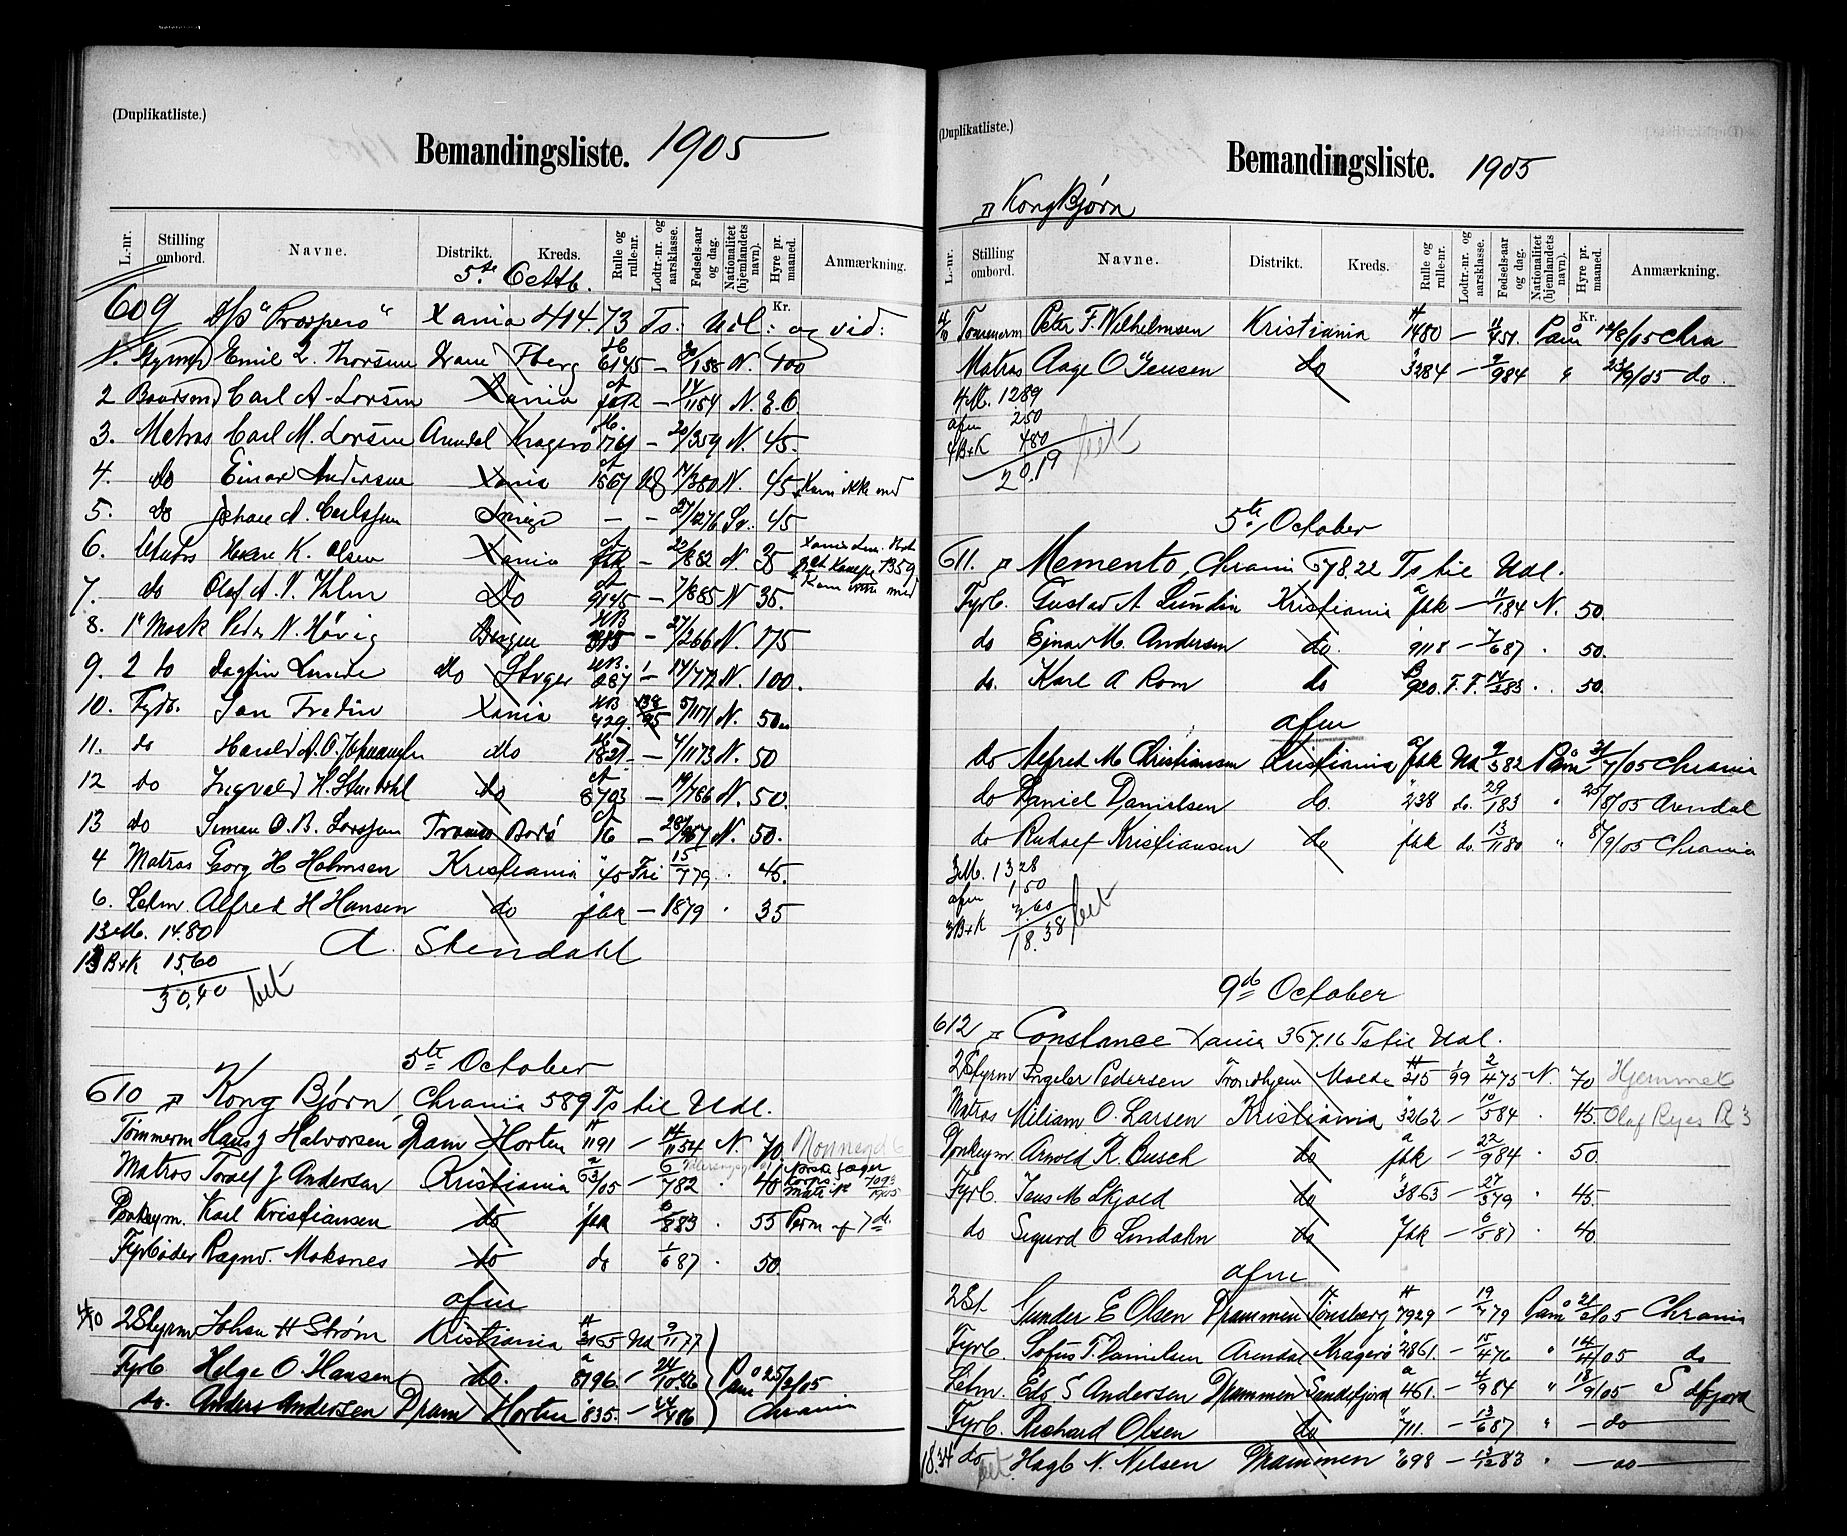 (Duplikatliste.)
Bemandingsliste. 1905
L.-nr. Stilling ombord. Navne. Distrikt. Kreds. Rulle og rulle-nr. Lodtr.-nr. og aarsklasse. Fødsels-aar og dag. Nationalitet (hjemlandets navn). Hyre pr. maaned. Anmærkning.
5te Octb.
Kr.
609 D/S "Prospero" Xania 414.73 Ts: Udl: og vid:
1. Styrmd Emil L. Thorsen Fberg 6145 N. 100
2 Baadsmd Carl A. Larsen Xania N. 80
3. Matros Carl M. Larsen Arendal Kragerø 1761 20/3 59 N. 45.
4. do Einar Andersen Xania 1567 N. 45 Kom ikke med
5. do Johan A. Carlssen – – 27/12 76 Sv. 45
6. K. Olsen Xania fbk 22/8 82 N 35
7. do Olaf A. V. do 9145 – 7/8 85 N 35. Kom ikke med
8. 1ste Mask Peder N. Høvig Bergen – 27/2 66 N. 175
9. 2 do Dagfin Lunde do – 14/7 72 N. 100.
10. Fyrb. Jan Fredin Xania 429. 5/11 71 N. 50
11. do Harald A. O. Johannessen do 1821 – 4/11 73 N. 50
12 do Ingvald H. Stendahl do 8703 – 19/7 86 N. 50.
13 do Simen O. B. Larssen Tromsø Bodø 16 – N. 50.
4 Matros Georg H Holmsen Kristiania 40 Fri 15/7 79 . 45.
6. Letm. Alfred H Hansen do fbk – 1879 . 35
13 M. 14.80
13 B+K 15.60
30.40 bet
A. Stendahl
5te October
610 Kong Bjørn, Chrania 589 Ts til Udl.
Tømmerm Hans J Halvorsen Dram Horten 1191 – 14/11 54 N. 70.
Matros Toralf J Andersen Kristiania 63/05 – 6/7 82 . 40
Donkeym. Karl Kristiansen do fbk 6/8 83 . 55
Fyrbøder Ragnv. Moksnes do do 1/6 87 . 50.
afm
4/10 2 Styrm Johan H Strøm Kristiania 3165 Ud 9/11 77
Fyrb Helge O. Hansen do. 8196. – 24/10 86 Paam 25/2/05
do. Anders Andersen Dram Horten 835. – 486 Chrania
(Duplikatliste.)
Bemandingsliste. 1905
Kong Bjørn
L.-nr. Stilling ombord. Navne. Distrikt. Kreds. Rulle og rulle-nr. Lodtr.-nr. og aarsklasse. Fødsels-aar og dag. Nationalitet (hjemlandets navn). Hyre pr. maaned. Anmærkning.
Kr.
4/10 Tømmerm Peter F. Wilhelmsen Kristiania 1480 – 4/4 51 Paam 12/8/05 Chra
Matros Aage O Jensen do 3284 – 2/9 84 " 23/9/05 do.
4 M. 1289
afm 250
4 B+K 480
20.19 bet
5te October
611. Memento, Chrania 678.22 Ts til Udl.
Fyrb. Gustav A Lundin Kristiania fbk – 11/1 84 N. 50.
do Ejnar M. Andersen do. 9118 – 7/6 87 . 50.
do. Karl A Rom do 920. F.F. 14/2 83 . . 50.
afm
do Alfred M Christiansen Kristiania fbk Ud 9/5 82 Paam 31/7/05 Chrania
do Daniel Danielsen do. 238 do. 29/1 83 " 25/8/05 Arendal
do Rudolf Kristiansen do fbk do. 13/11 80 " 8/9/05 Chrania
3 M. 13 28
afm 1.50
3 B+K 3.60
18.38 bet
9de October
612 Constance Xania 367.16 Ts til Udl.
2 Styrm Ingeler Pedersen Trondhjem Molde 215 1/99 2/4 75 N. 70 Hjemmek
Matros Miliam O. Larsen Kristiania 3262 – 10/5 84 . 45. Olaf Ryes Pl 3
Donkeym. Arnold R. Busch do fbk – 22/9 84 . 50.
Fyrb. Jens M Skjold do 3863 – 27/5 79 . 45.
do Sigurd O Lindahn do fbk – 6/5 87 . 40
afm
2 St Gunder E Olsen Drammen Tønsberg 7929 – 19/7 79 Paam 21/2/05 Chrania
Fyrb. Sofus T. Danielsen Arendal Kragerø 2861. – 15/4 76 " 14/4/05 do
Letm. Edv S Andersen Drammen Sandefjord 461. – 4/9 84 " 18/9/05 S dfjord
Fyrb. Richard Olsen do 711. – 13/6 87 " – do
18.34 bet do Hagb N. Nelsen Drammen 698 – 13/12 83 " – do